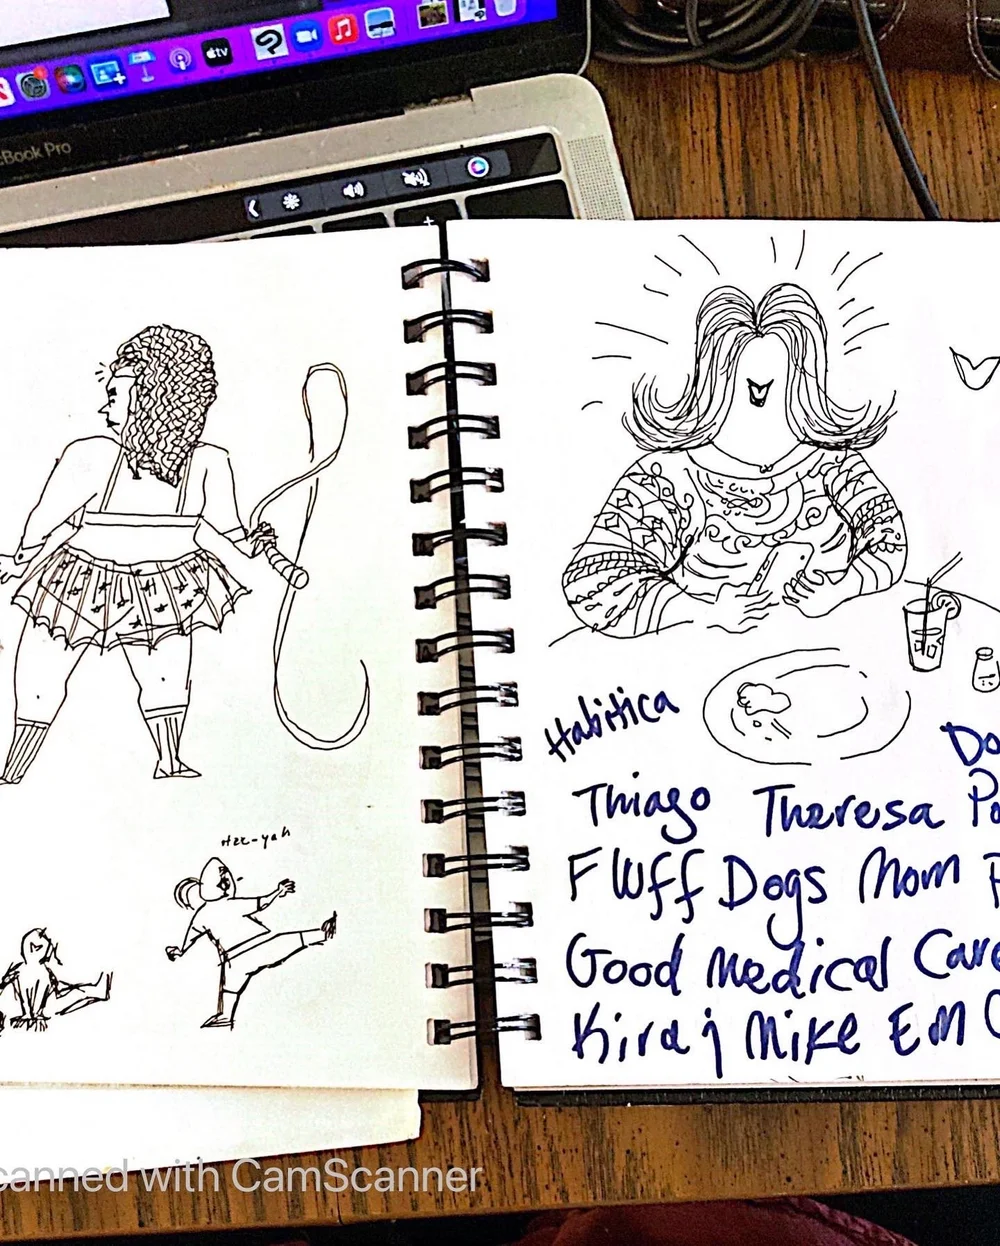 Book Pro
tv
Hee-yah
Habitica
Do
Thiago Theresa Po
Fluff Dogs Mom
Good Medical Care
Kira j Mike Em
canned with CamScanner